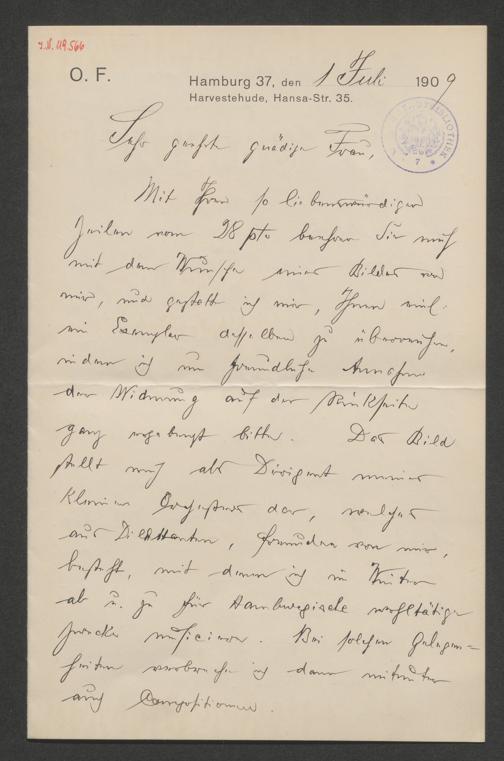 J.N. 119.566
O. F.
Hamburg 37, den 1 Juli 1909
Harvestehude, Hansa-Str. 35.
Sehr geehrte gnädige Frau,
Mit Ihren so liebenswürdigen
Zeilen vom 28 pto beehren Sie mich
mit dem Wunsche eines Bildes von
mir, und gestatte ich mir, Ihnen
ein Exemplar desselben zu überreichen,
indem ich um freundliche Annahme
der Widmung auf der Rückseite
ganz ergebenst bitte. Das Bild
stellt mich als Dirigent meines
kleinen Orchesters dar, welches
aus Dilettanten, Freunden von mir,
besteht, mit denen ich im Winter
ab u. zu für Hamburgische wohltätige
Zwecke musiciere. Bei solchen Gelegen=
heiten verbreche ich dann mitunter
auch Compositionen.